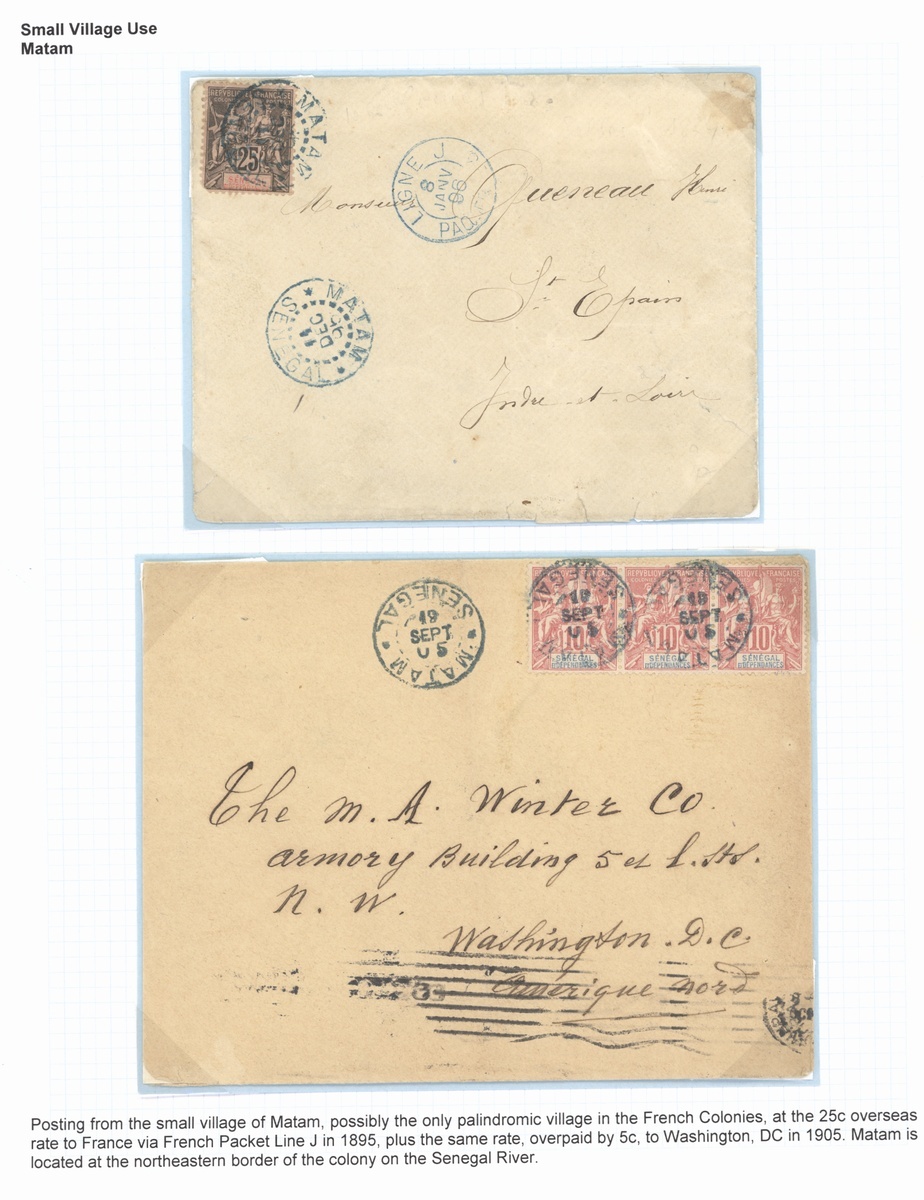 Small Village Use
Matam
REPUBLIQUE FRANÇAISE
25
MATAM
LIGNE J
PAQ
8
JANV
96
Monsieur Queneau Henri
St Epain
Indre et Loire
MATAM
SENEGAL
11
DEC
95
SENEGAL
MATAM
19
SEPT
05
SENEGAL
19
SEPT
05
SENEG
MATAM
19
SEPT
05
REPUBLIQUE FRANÇAISE
10 10 10
SÉNÉGAL SÉNÉGAL SÉNÉGAL
ET DÉPENDANCES ET DÉPENDANCES ET DÉPENDANCES
The M. A. Winter Co.
Armory Building 5 et L. Sts.
N. W.
Washington. D. C.
Amerique nord
Posting from the small village of Matam, possibly the only palindromic village in the French Colonies, at the 25c overseas
rate to France via French Packet Line J in 1895, plus the same rate, overpaid by 5c, to Washington, DC in 1905. Matam is
located at the northeastern border of the colony on the Senegal River.